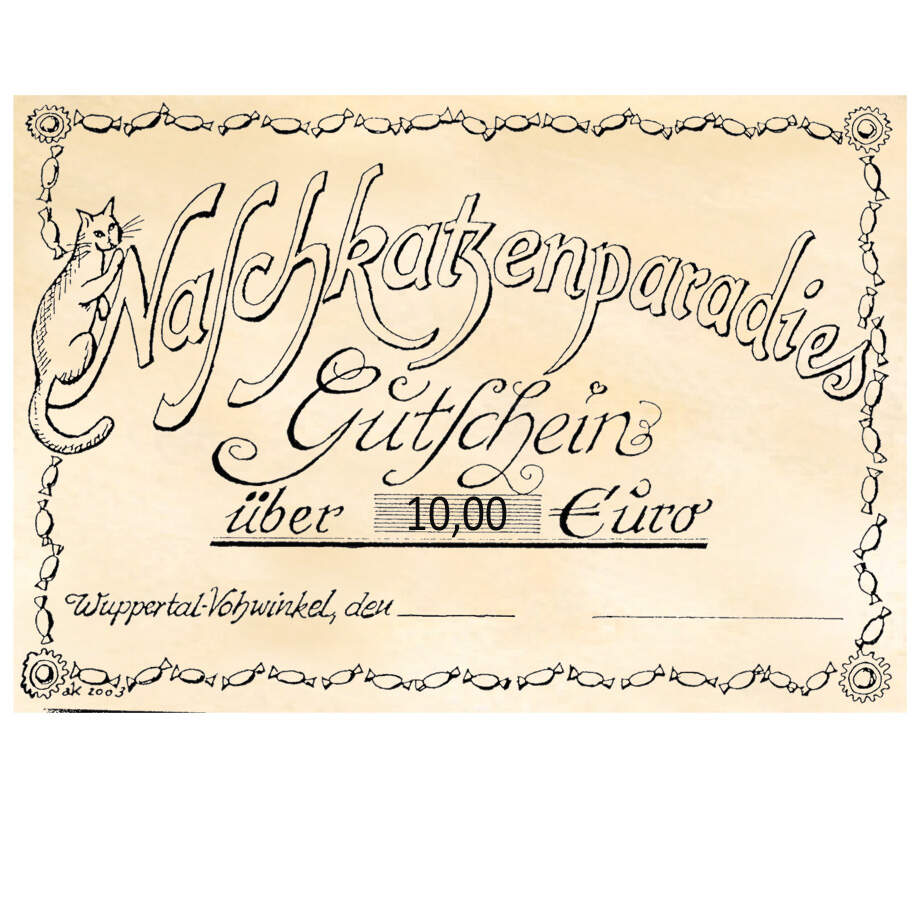 Naschkatzenparadies
Gutschein
über 10,00 Euro
Wuppertal-Vohwinkel, den
aK 2003